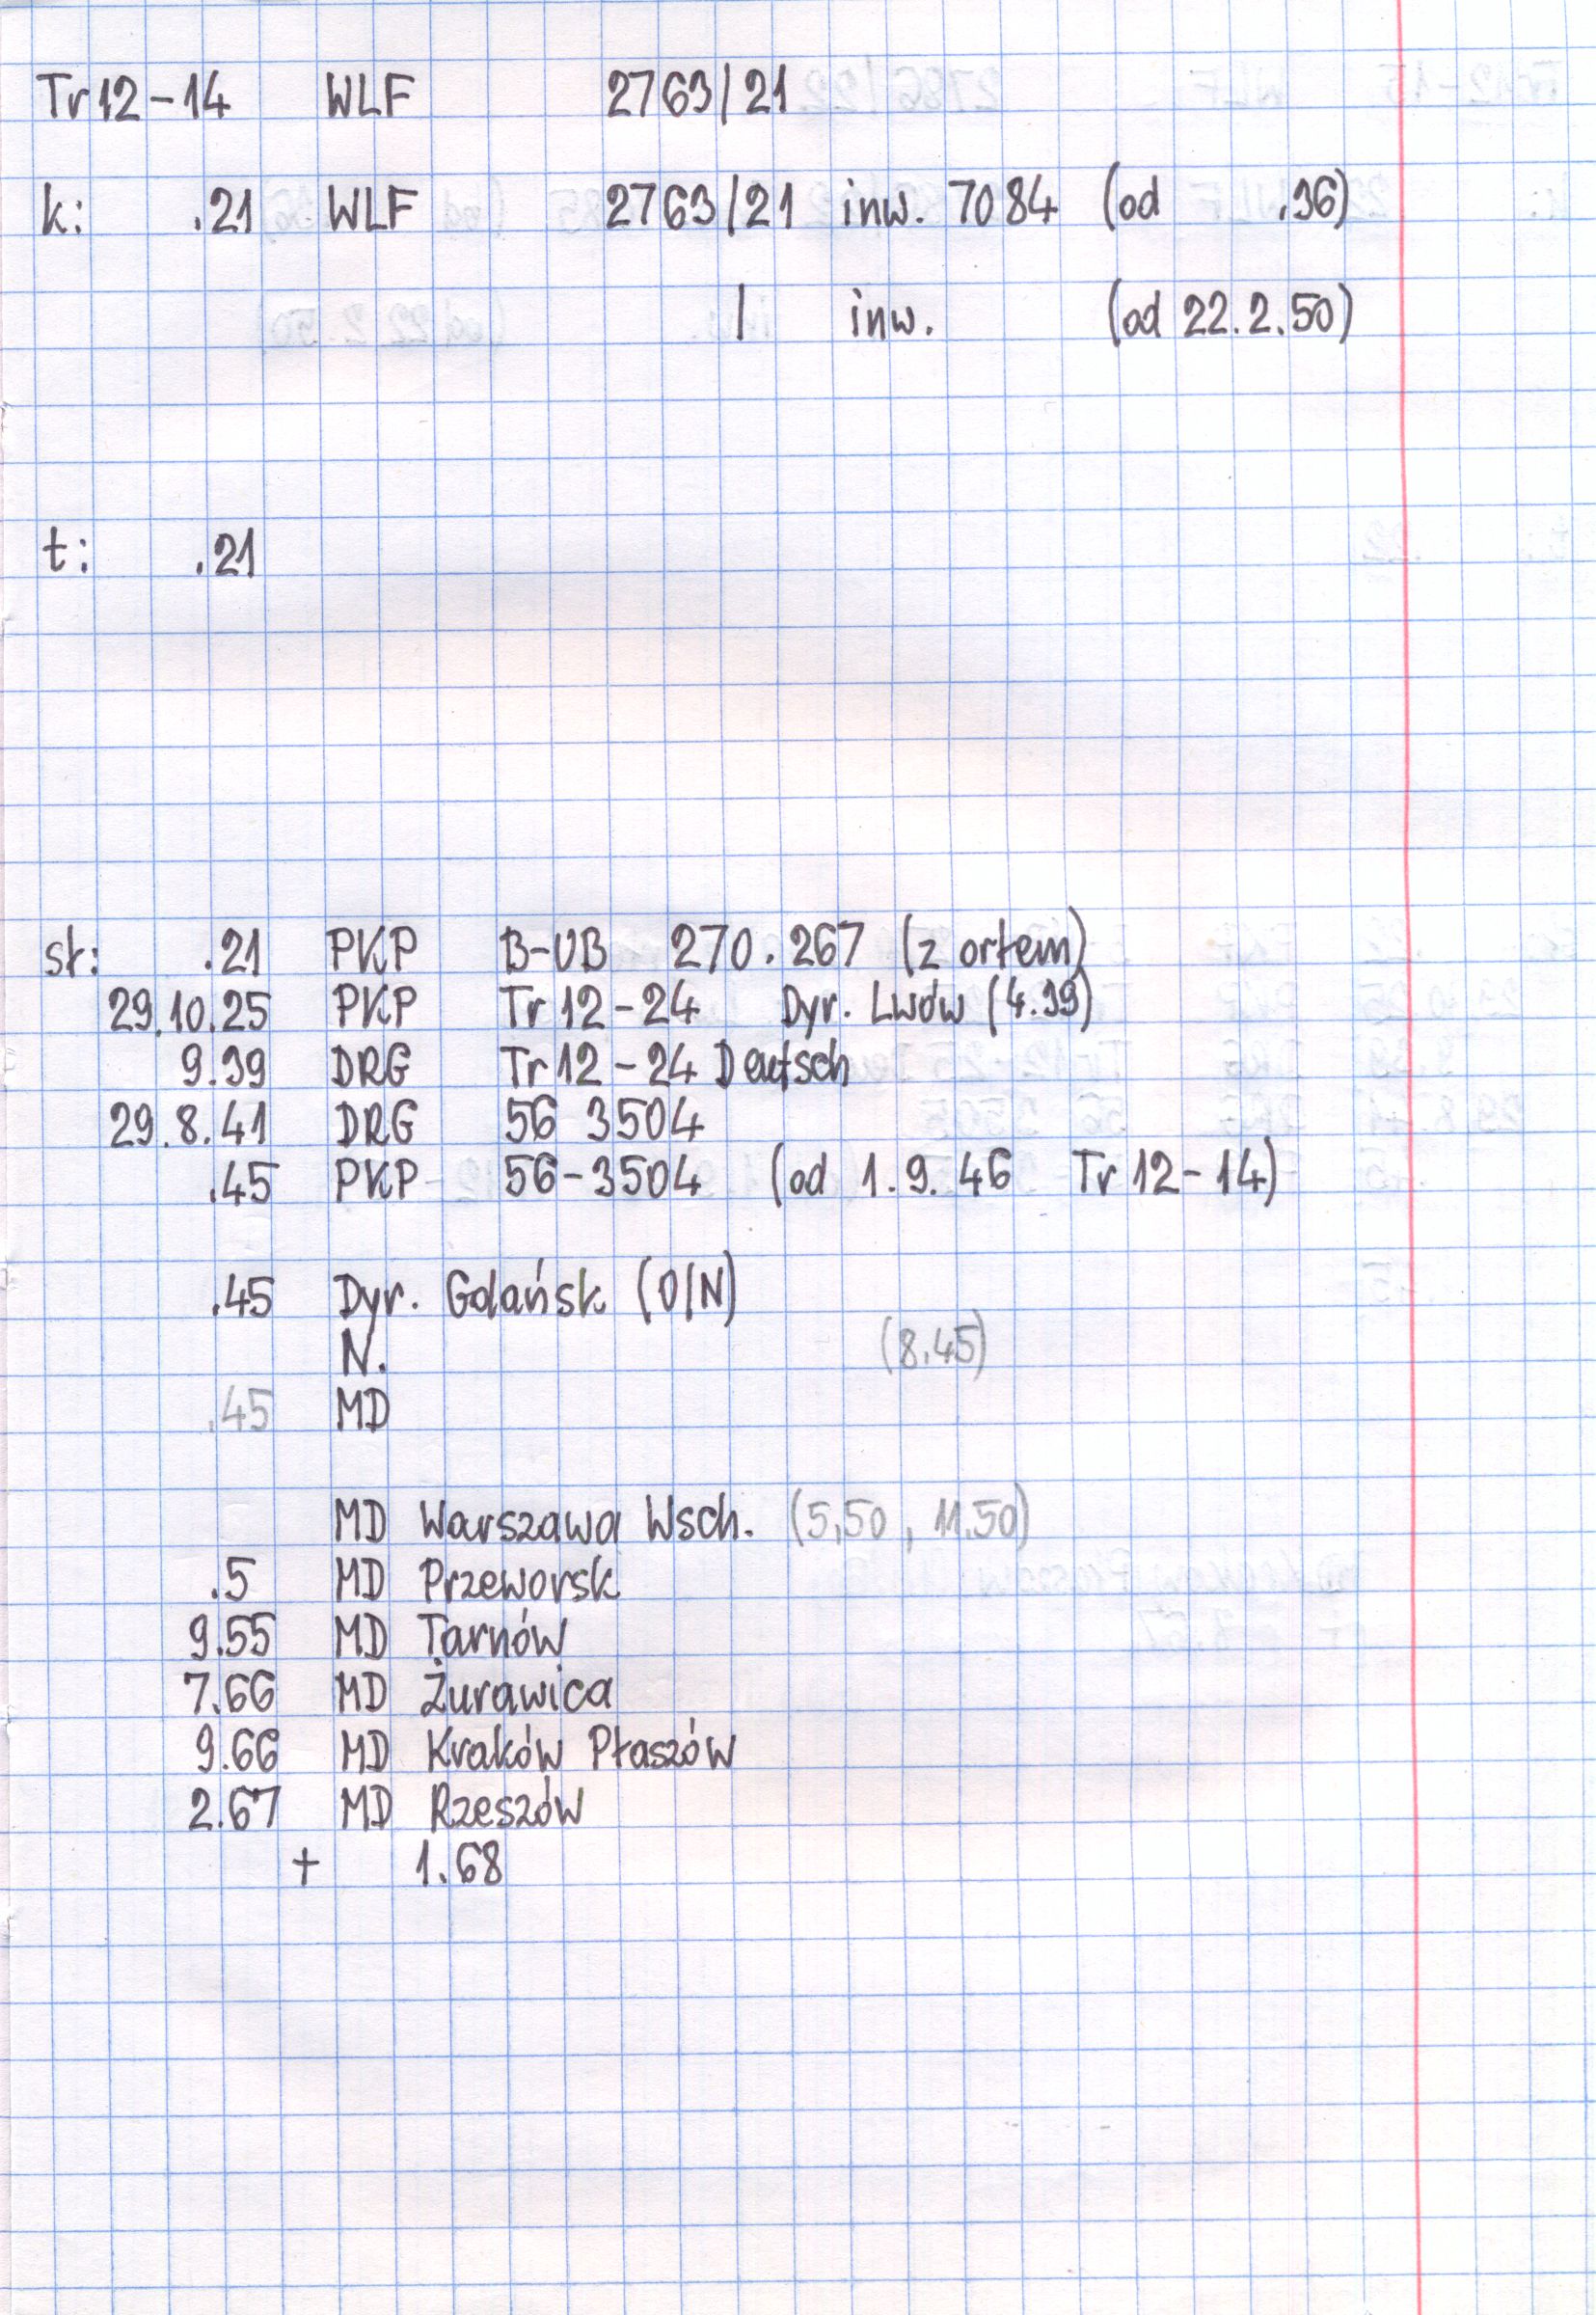 Tr12-14 WLF 2763/21
k: .21 WLF 2763/21 inw. 7084 (od .36)
/ inw. (od 22.2.50)
t: .21
st: .21 PKP B-UB 270.267 (z ortem)
29.10.25 PKP Tr12-24 Dyr. Lwów (4.39)
9.39 DRG Tr12-24 Deutsch
29.8.41 DRG 56 3504
.45 PKP 56-3504 (od 1.9.46 Tr12-14)
.45 Dyr. Gdańsk (O/N)
N. (8.45)
.45 MD
MD Warszawa Wsch. (5.50, 11.50)
.5 MD Przeworsk
9.55 MD Tarnów
7.66 MD Żurawica
9.66 MD Kraków Płaszów
2.67 MD Rzeszów
+ 1.68